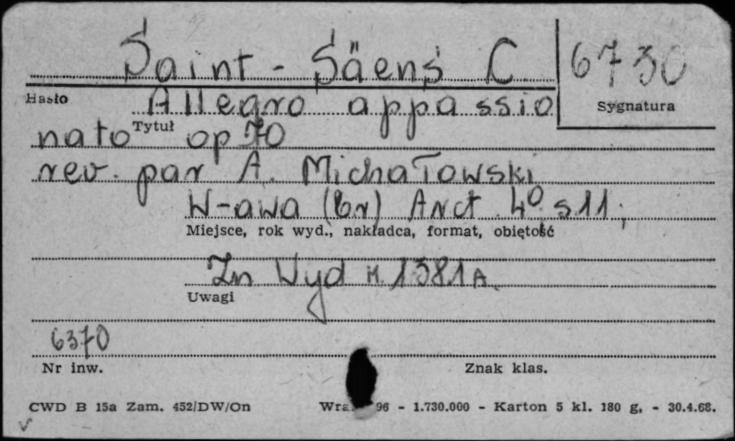 Saint - Säens C
6730
Hasło
Allegro appassio
Sygnatura
nato Tytuł op 70
rev. par A. Michałowski
W-awa (br) Arct. 4º, s 11;
Miejsce, rok wyd., nakładca, format, objętość
Zn Wyd M. 1381 A.
Uwagi
6370
Nr inw.
Znak klas.
CWD B 15a Zam. 452/DW/On
96 - 1.730.000 - Karton 5 kl. 180 g, - 30.4.68.